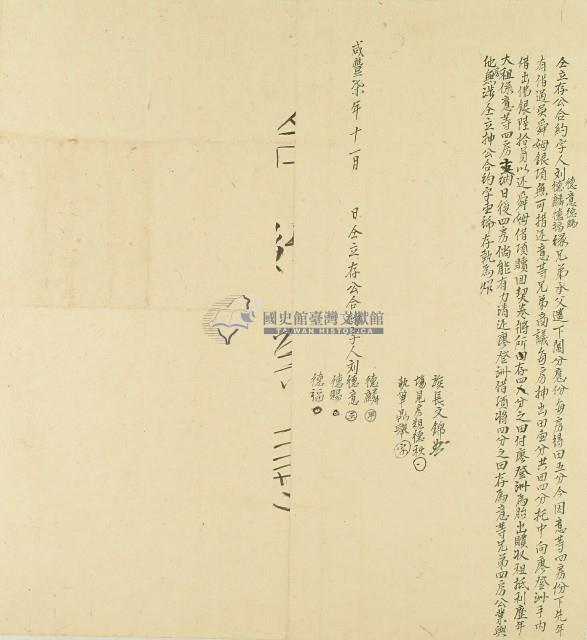 仝立存公合約字人刘德意德賜德麟德福緣兄弟承父遺下鬮分應份每房得田五分今因意等四房份下先年
有借過吳舜姆銀項無可措还意等兄弟商議每房抽出田壹分共田四分托中向廖登洲手內
借出佛銀陸拾員以还舜姆借項贖回契卷將所田存四分之田付廖登洲為胎出贌收租抵利歷年
大租係意等四房支納日後四房倘能有力清还廖登洲借項將四分之田存為意等兄弟四房公業與
他無涉仝立抽公合約字壹紙存執為炤
族長文錦
場見房親德秋
執筆
咸豐柒年十一月 日仝立存公合約字人刘德意
德麟
德賜
德福
國史館臺灣文獻館
TAIWAN HISTORICA